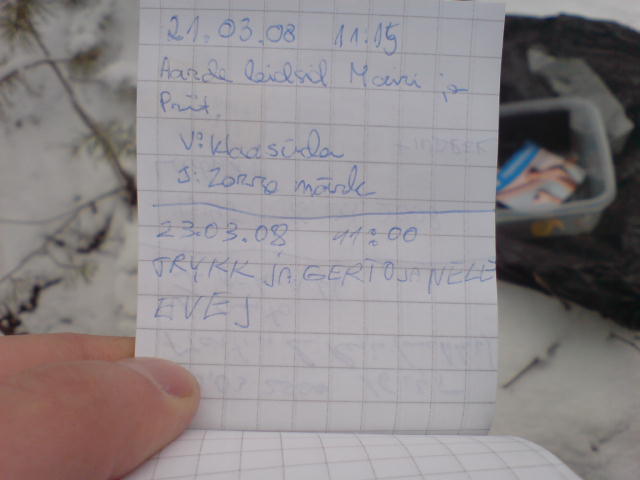 21.03.08 11:15
Aarde leidsid Mairi ja
Priit.
V: klaasinda
J: Zorro märk
23.03.08 11:00
TRYKK JA GERTO JA NELE
EVEJ